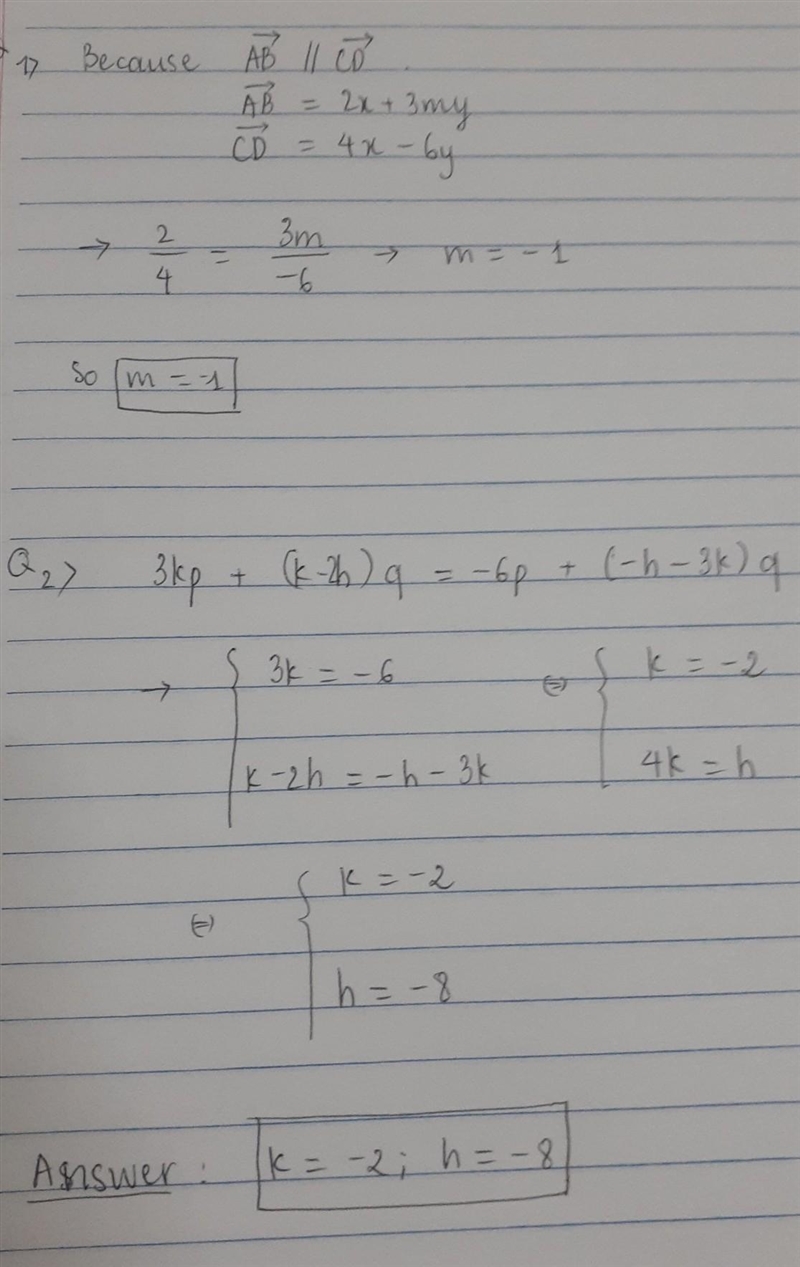 1> Because $\overrightarrow{AB}$ // $\overrightarrow{CD}$.
$\overrightarrow{AB}$ = 2x + 3my
$\overrightarrow{CD}$ = 4x - 6y
→ $\frac{2}{4} = \frac{3m}{-6}$ → m = -1
So m = -1
Q2> 3kp + (k-2h)q = -6p + (-h-3k)q
→ { 3k = -6 ⇔ { k = -2
k-2h = -h-3k 4k = h
⇔ { k = -2
h = -8
Answer: k = -2; h = -8